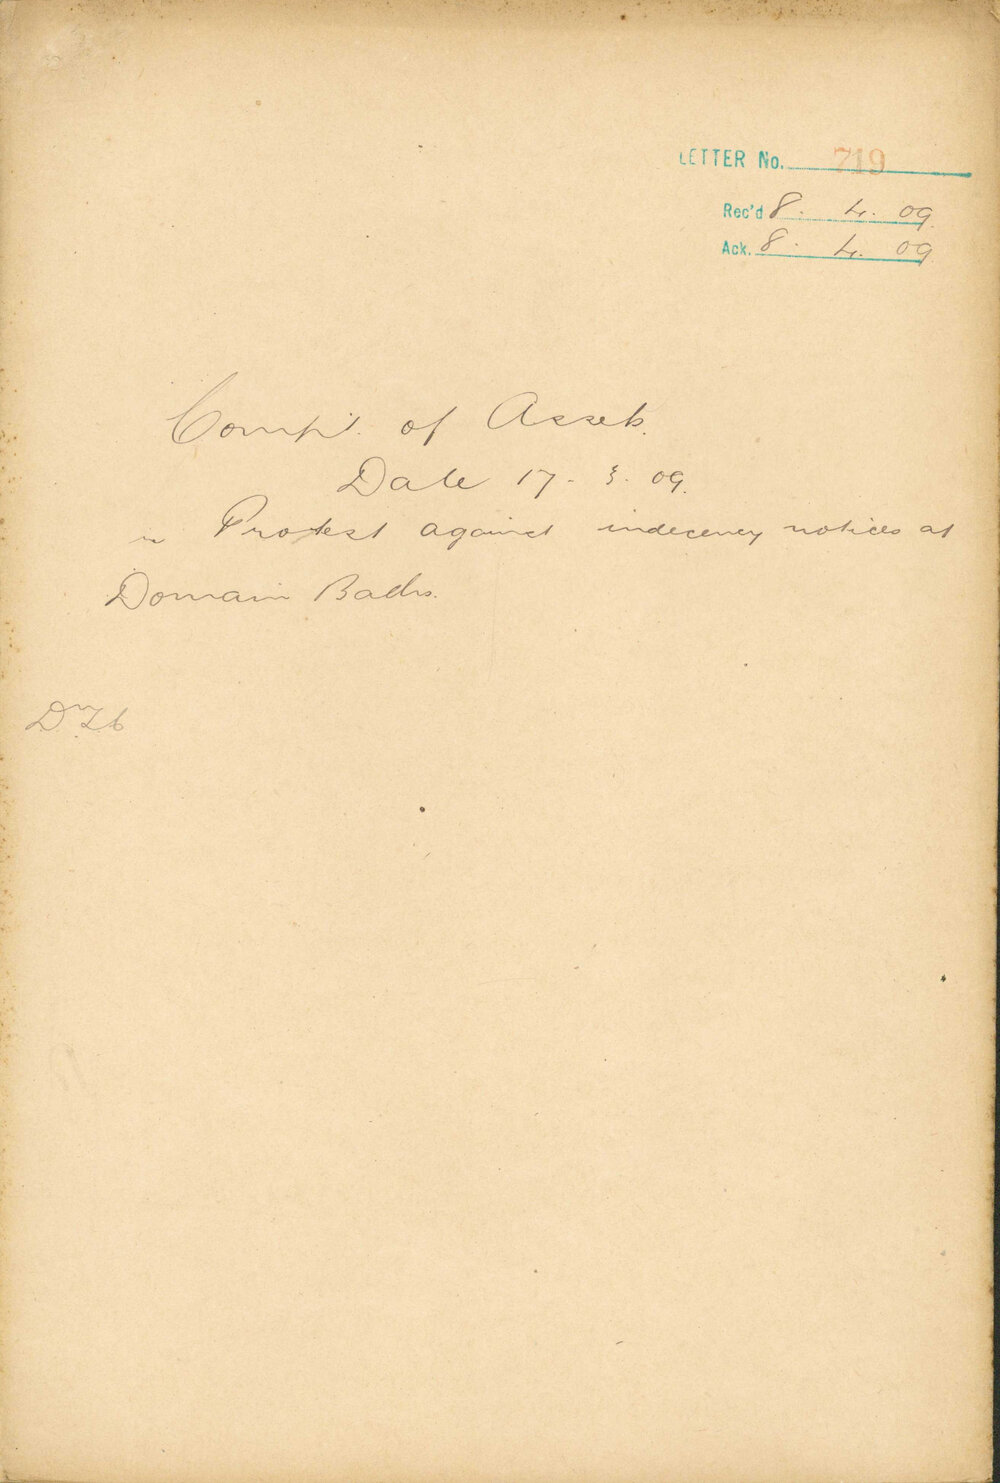 LETTER No. 719
Rec'd 8. 4. 09.
Ack. 8. 4. 09
Compt. of Assets.
Date 17. 3. 09.
Protest against indecency notices at
Domain Baths.